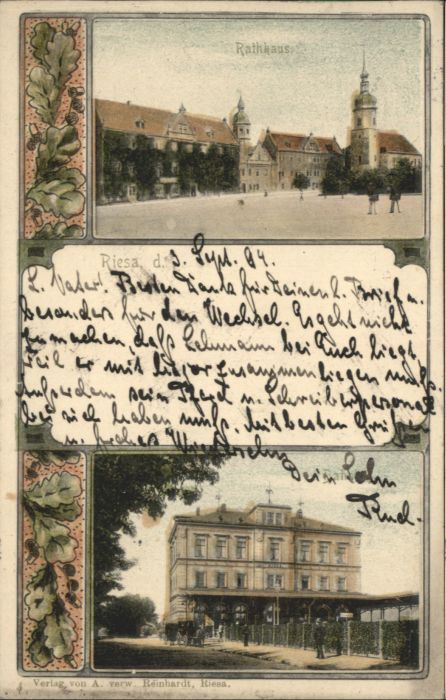 Rathhaus
Riesa, d. 3. Sept. 04.
L. Vater! Besten Dank für Deinen l. Brief u.
besonders für den Wechsel. Es geht nicht
zu machen, daß Lehmann bei Euch liegt,
weil er mit zusammenliegen muß.
Außerdem sein Pferd u. Schreiberpersonal
bei sich haben muß. Mit besten Grüßen
u. frohes Wiedersehn
Dein Sohn
Rud.
Verlag von A. verw. Reinhardt, Riesa.